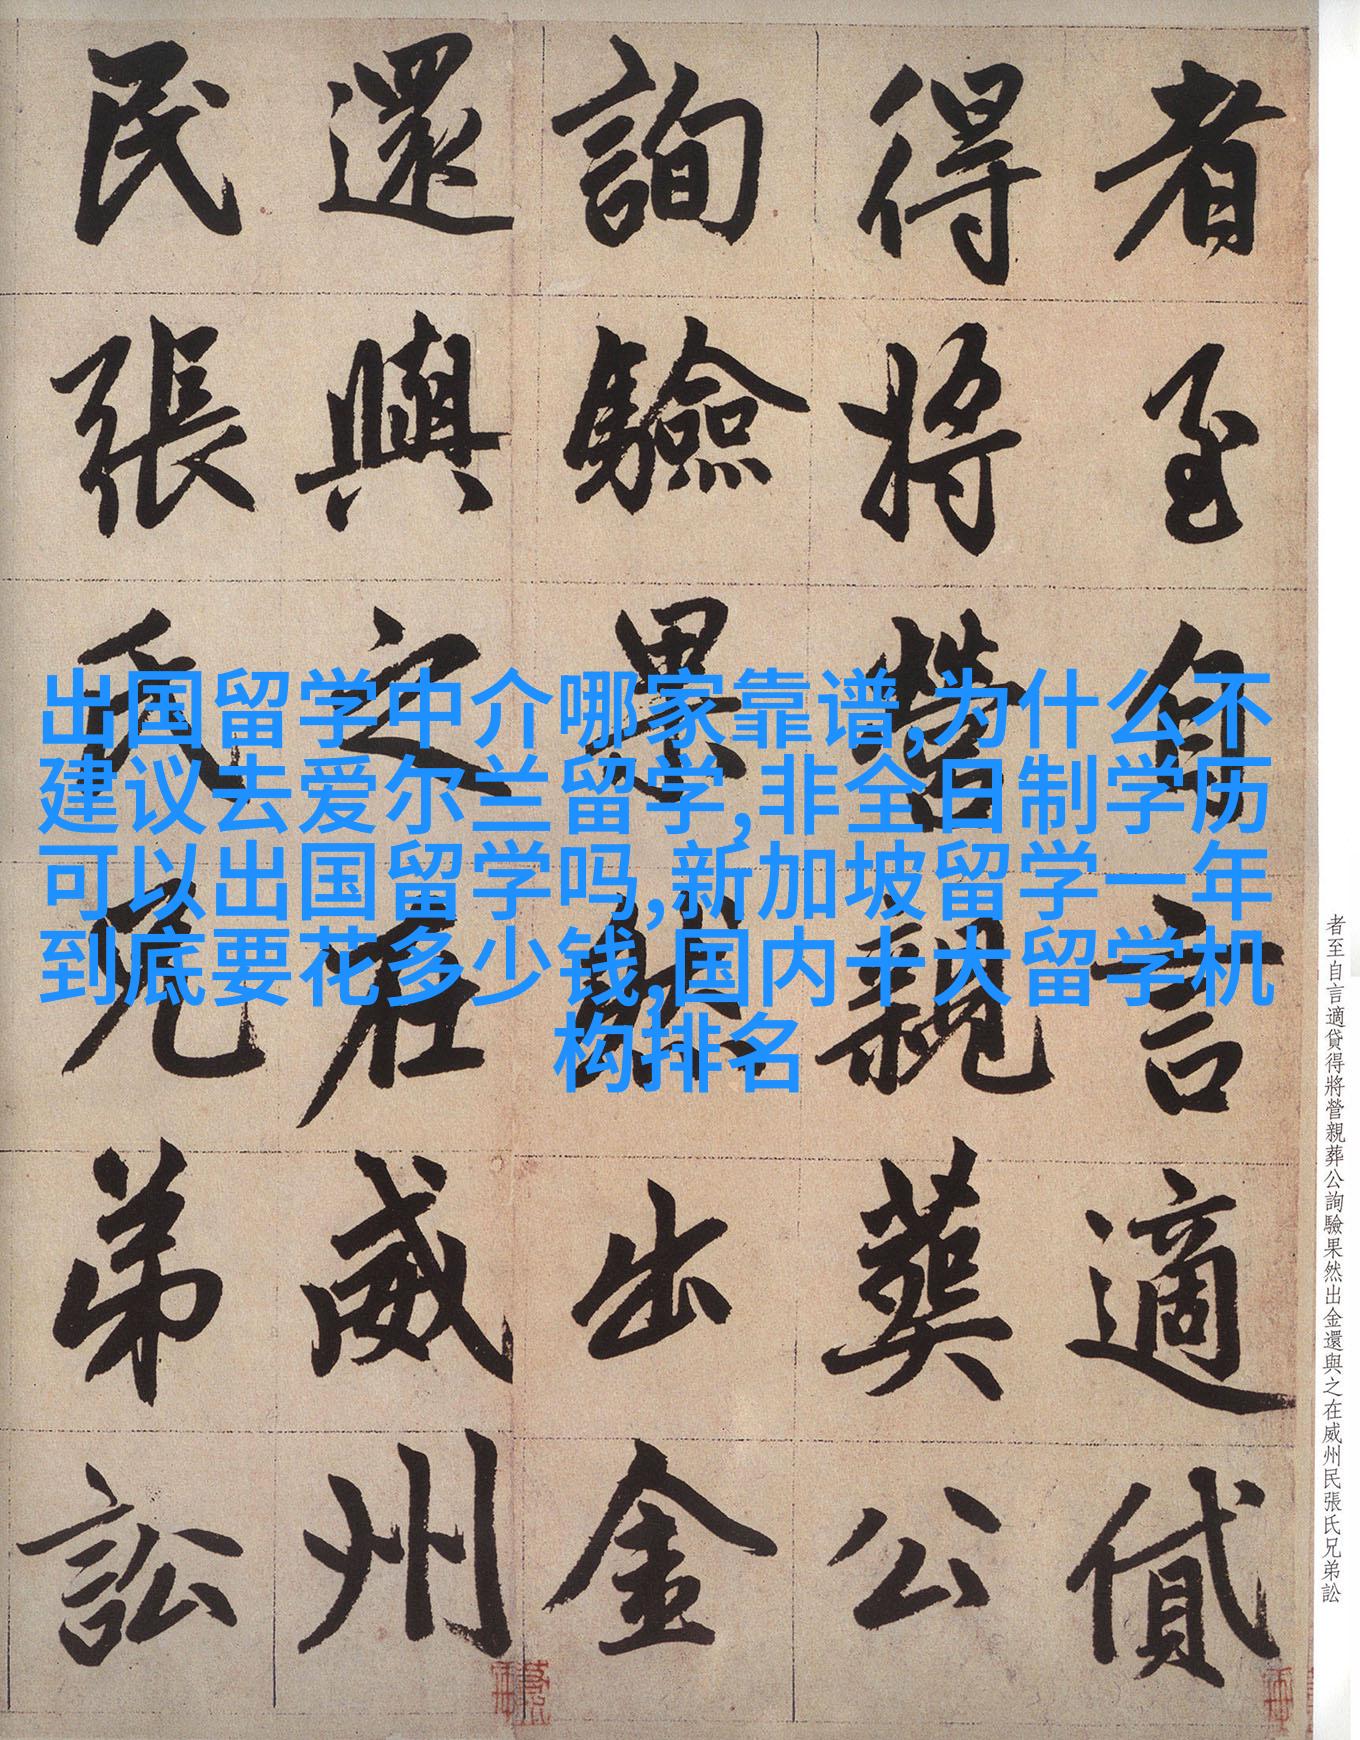 者至自言適貸
得將營親葬公
詢驗果然出金
還與之在威州
民張氏兄弟訟
出国留学中介哪家靠谱,为什么不
建议去爱尔兰留学,非全日制学历
可以出国留学吗,新加坡留学一年
到底要花多少钱,国内十大留学机
构排名
者至自言適貸得將營親葬公詢驗果然出金還與之在威州民張氏兄弟訟